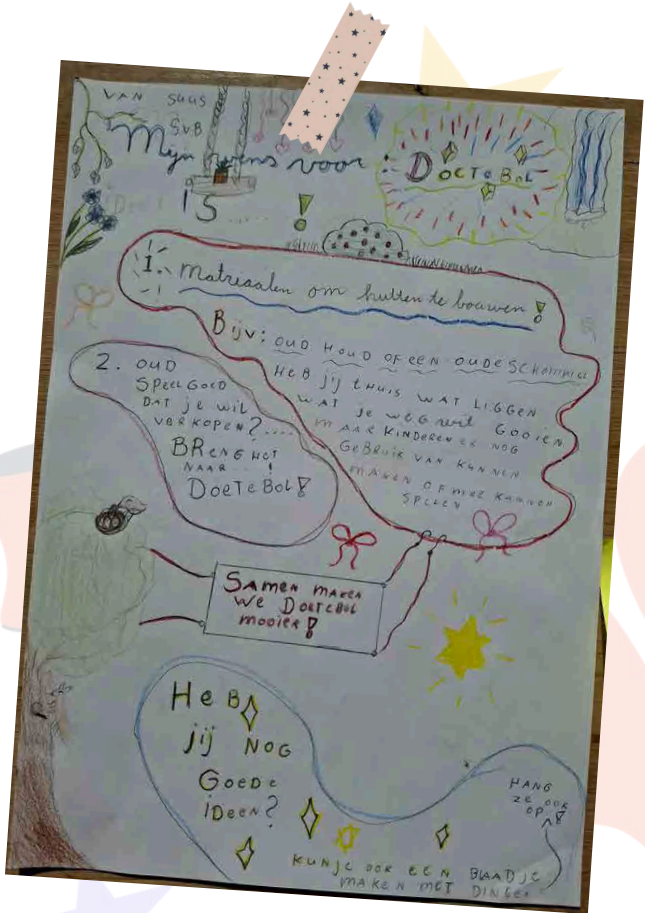 VAN SUUS
S.V.B
Mijn wens voor :
DOETEBOL
IS ..... !
1. Matriaalen om hutten te bouwen!
Bijv: OUD HOUD OF EEN OUDE SCHOMMEL
HEB jij tHUIS WAT LIGGEN
WAT je weg wil GOOIEN
MAAR KINDEREN ER NOG
GEBRUIK VAN KUNNEN
MAKEN OF MEE KUNNEN
SPELEN
2. OUD
SPEELGOED
DAT je wil
VERKOPEN?....
BRENG HET
NAAR...!
DOETEBOL!
SAMEN MAKEN
WE DOETEBOL
MOOIER!
HEB
jij NOG
GOEDE
IDEEN?
HANG
ZE OOK
OP!
KUN JE OOK EEN BLAADJE
MAKEN MET DINGEN